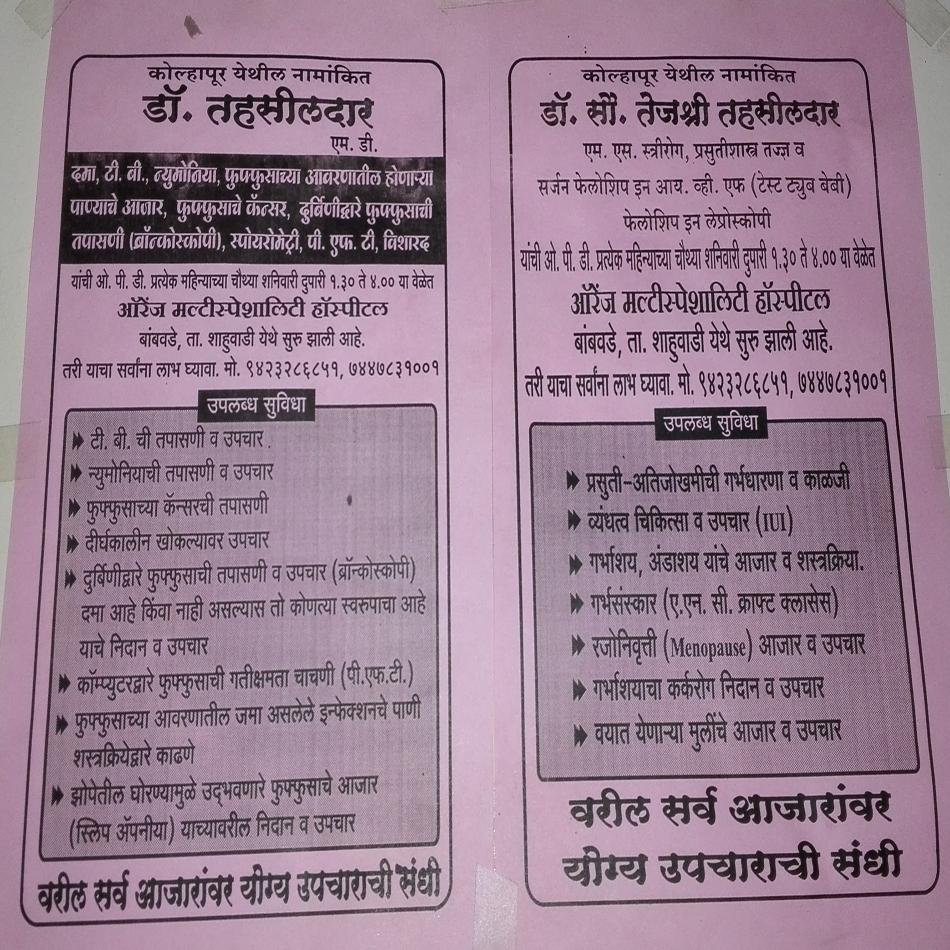 कोल्हापूर येथील नामांकित
डॉ. तहसीलदार
एम. डी.
दमा, टी. बी., न्युमोनिया, फुफ्फुसाच्या आवरणातील होणाऱ्या
पाण्याचे आजार, फुफ्फुसाचे कॅन्सर, दुर्बिणीद्वारे फुफ्फुसाची
तपासणी (ब्रॉन्कोस्कोपी), स्पोयरोमेट्री, पी. एफ. टी, विशारद
यांची ओ. पी. डी. प्रत्येक महिन्याच्या चौथ्या शनिवारी दुपारी १.३० ते ४.०० या वेळेत
ऑरेंज मल्टीस्पेशालिटी हॉस्पीटल
बांबवडे, ता. शाहुवाडी येथे सुरु झाली आहे.
तरी याचा सर्वांना लाभ घ्यावा. मो. ९४२३२८६८५१, ७४४७८३१००१
उपलब्ध सुविधा
टी. बी. ची तपासणी व उपचार .
न्युमोनियाची तपासणी व उपचार
फुफ्फुसाच्या कॅन्सरची तपासणी
दीर्घकालीन खोकल्यावर उपचार
दुर्बिणीद्वारे फुफ्फुसाची तपासणी व उपचार (ब्रॉन्कोस्कोपी)
दमा आहे किंवा नाही असल्यास तो कोणत्या स्वरुपाचा आहे
याचे निदान व उपचार
कॉम्प्युटरद्वारे फुफ्फुसाची गतीक्षमता चाचणी (पी.एफ.टी.)
फुफ्फुसाच्या आवरणातील जमा असलेले इन्फेक्शनचे पाणी
शस्त्रक्रियेद्वारे काढणे
झोपेतील घोरण्यामुळे उद्‌भवणारे फुफ्फुसाचे आजार
(स्लिप ॲपनीया) याच्यावरील निदान व उपचार
वरील सर्व आजारांवर योग्य उपचाराची संधी
कोल्हापूर येथील नामांकित
डॉ. सौ. तेजश्री तहसीलदार
एम. एस. स्त्रीरोग, प्रसुतीशास्त्र तज्ज्ञ व
सर्जन फेलोशिप इन आय. व्ही. एफ (टेस्ट ट्युब बेबी)
फेलोशिप इन लेप्रोस्कोपी
यांची ओ. पी. डी. प्रत्येक महिन्याच्या चौथ्या शनिवारी दुपारी १.३० ते ४.०० या वेळेत
ऑरेंज मल्टीस्पेशालिटी हॉस्पीटल
बांबवडे, ता. शाहुवाडी येथे सुरु झाली आहे.
तरी याचा सर्वांना लाभ घ्यावा. मो. ९४२३२८६८५१, ७४४७८३१००१
उपलब्ध सुविधा
प्रसुती-अतिजोखमीची गर्भधारणा व काळजी
व्यंधत्व चिकित्सा व उपचार (IUI)
गर्भाशय, अंडाशय यांचे आजार व शस्त्रक्रिया.
गर्भसंस्कार (ए.एन. सी. क्राफ्ट क्लासेस)
रजोनिवृत्ती (Menopause) आजार व उपचार
गर्भाशयाचा कर्करोग निदान व उपचार
वयात येणाऱ्या मुलींचे आजार व उपचार
वरील सर्व आजारांवर
योग्य उपचाराची संधी